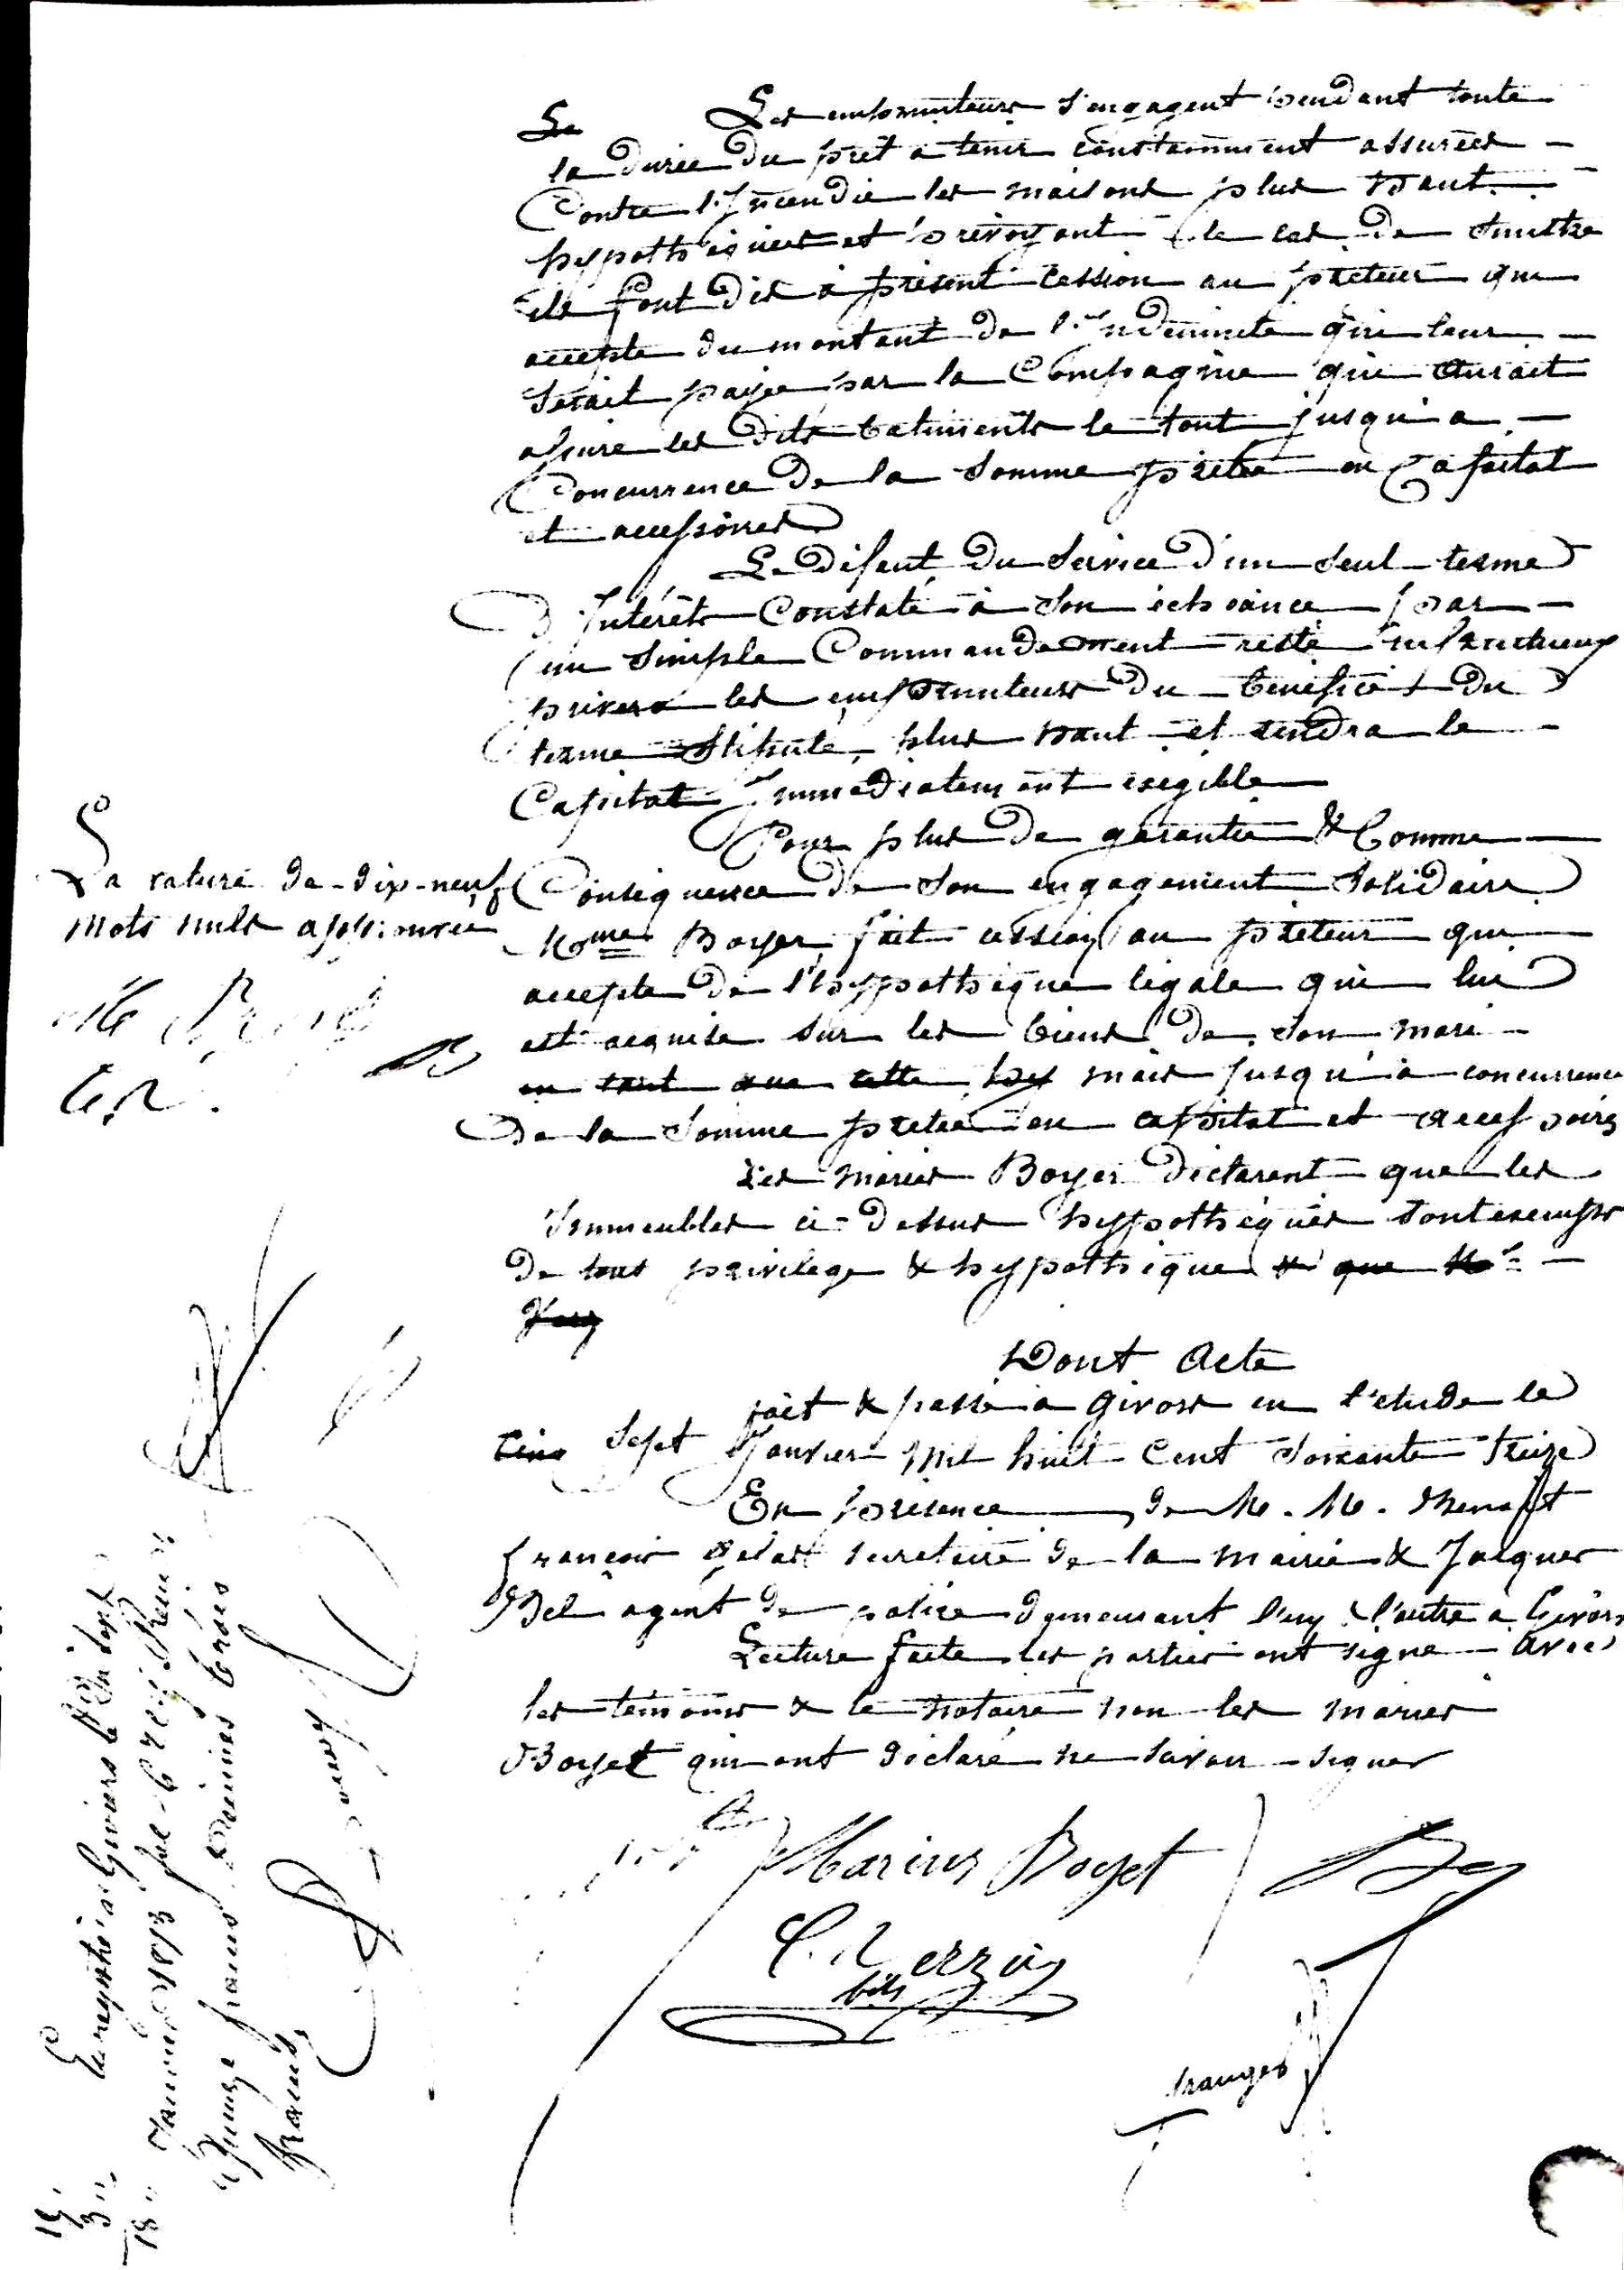 Les emprunteurs s'engagent pendant toute
la durée du prêt a tenir constamment assurées
Contre l'Incendie les maisons plus haut
hypothéquées et prévoyant le cas de Sinistre
ils font dès à présent cession au prêteur qui
accepte du montant de l'Indemnité qui leur
serait payée par la Compagnie qui aurait
assuré les dits batiments le tout jusqu'à
Concurrence de la somme prêtée en Capital
et accessoires
Le défaut du service d'un seul terme
d'Intérêts Constaté à son échéance par
un simple Commandement resté infructueux
privera les emprunteurs du bénéfice du
terme stipulé plus haut et rendra le
Capital Immédiatement exigible
Pour plus de garantie & Comme
Conséquence de son engagement solidaire
Mme Boyer fait cession au prêteur qui
accepte de l'hypothèque légale qui lui
est acquise sur les biens de son mari
en tant que cette hy mais jusqu'à concurrence
de la somme prêtée en capital et accessoires
Les mariés Boyer déclarent que les
Immeubles ci-dessus hypothéqués sont exempts
de tous privilège & hypothèque & que
Dont Acte
fait & passé a Givors en l'étude le
Cinq Sept Janvier Mil huit Cent soixante treize
En présence de M. M.
François secrétaire de la mairie & Jacques
agent de police demeurant l'un & l'autre a Givors
Lecture faite les parties ont signé avec
les témoins & le notaire non les mariés
Boyet qui ont déclaré ne savoir signer
La rature de dix-neuf
mots nuls approuvée
Marius Boyet
fils
Enregistré à Givors le
Janvier 1873 fol 6
quinze francs Décimes trois
francs
15
3 "
18 "